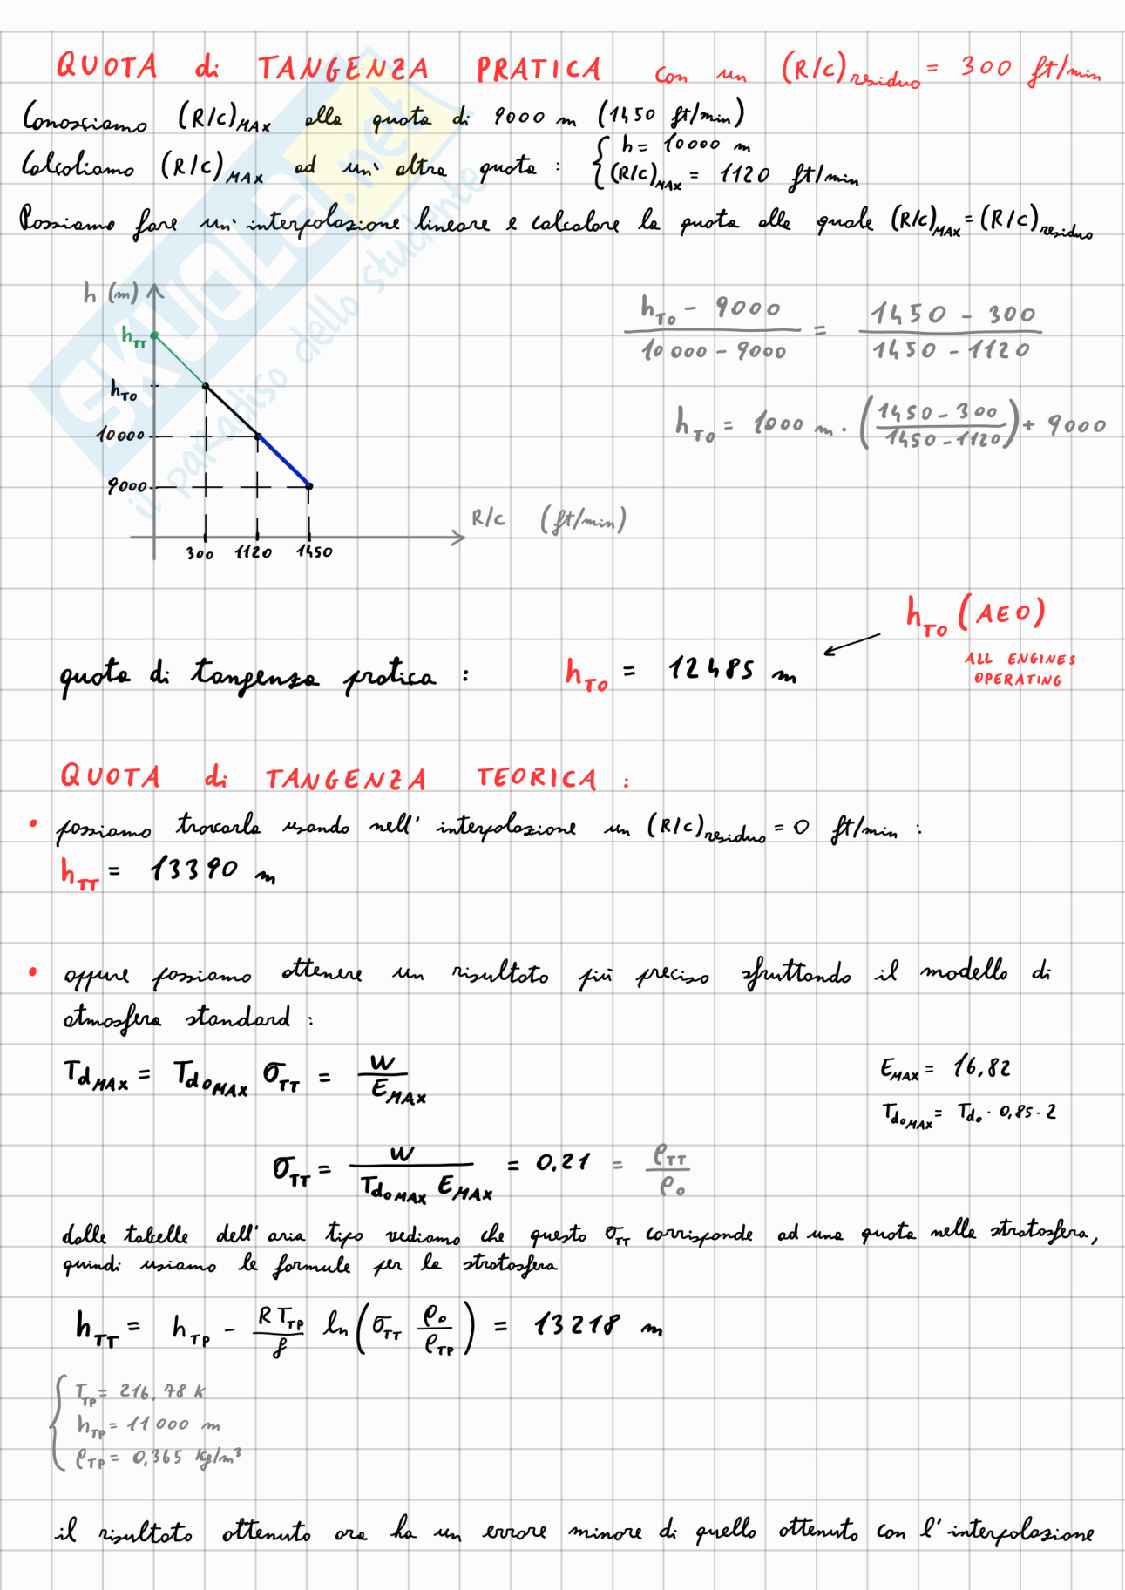 QUOTA di TANGENZA PRATICA con un (R/C)residuo = 300 ft/min
Conosciamo (R/C)MAX alla quota di 9000 m (1450 ft/min)
Calcoliamo (R/C)MAX ad un'altra quota : { h = 10000 m
(R/C)MAX = 1120 ft/min
Possiamo fare un'interpolazione lineare e calcolare la quota alla quale (R/C)MAX = (R/C)residuo
h (m)
hTT
hTO
10000
9000
300 1120 1450
R/C (ft/min)
hTO - 9000 / 10000 - 9000 = 1450 - 300 / 1450 - 1120
hTO = 1000 m · (1450 - 300 / 1450 - 1120) + 9000
hTO (AEO)
ALL ENGINES
OPERATING
quota di tangenza pratica : hTO = 12485 m
QUOTA di TANGENZA TEORICA :
• possiamo trovarla usando nell'interpolazione un (R/C)residuo = 0 ft/min :
hTT = 13390 m
• oppure possiamo ottenere un risultato più preciso sfruttando il modello di
atmosfera standard :
TdMAX = Td0MAX σTT = W / EMAX
EMAX = 16,82
Td0MAX = Td0 · 0,85 · 2
σTT = W / Td0MAX EMAX = 0.21 = ρTT / ρ0
dalle tabelle dell'aria tipo vediamo che questo σTT corrisponde ad una quota nella stratosfera,
quindi usiamo le formule per la stratosfera
hTT = hTP - R TTP / g ln(σTT ρ0 / ρTP) = 13218 m
{ TTP = 216,78 K
hTP = 11000 m
ρTP = 0,365 kg/m³
il risultato ottenuto ora ha un errore minore di quello ottenuto con l'interpolazione
SKUOLA.net
il paradiso dello studente